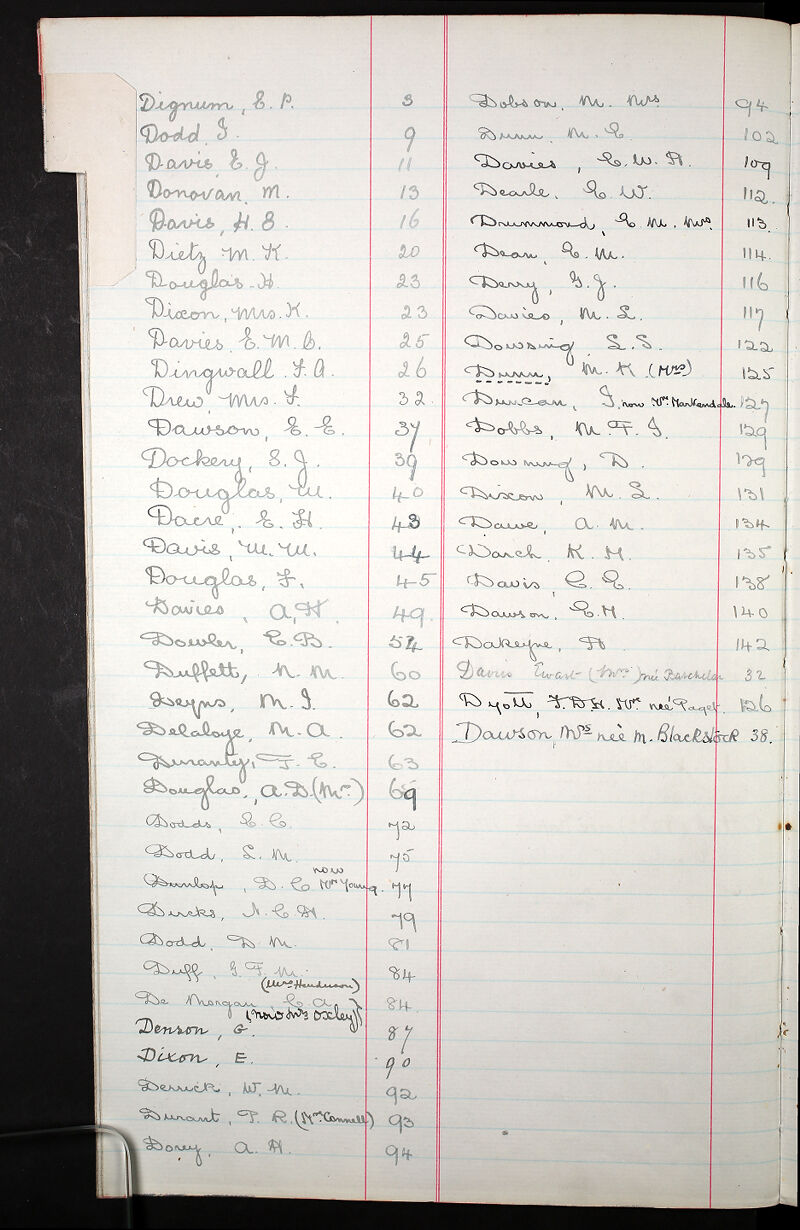 Dignum, E. P. 3
Dodd, I. 9
Davis, E. J. 11
Donovan, M. 13
Davis, H. E. 16
Dietz, M. K. 20
Douglas, H. 23
Dixon, Mrs. K. 23
Davies, E. M. B. 25
Dingwall, F. A. 26
Drew, Mrs. F. 32
Dawson, E. E. 37
Dockery, S. J. 39
Douglas, W. 40
Dacre, E. H. 43
Davis, W. W. 44
Douglas, F. 45
Davies, A. H. 49
Dowler, E. B. 54
Duffett, N. M. 60
Deyns, M. I. 62
Delaloye, M. A. 62
Duranty, F. E. 63
Douglas, A. D. (Mrs) 69
Dodds, E. C. 72
Dodd, L. M. 75
Dunlop, D. C. now Mrs Young. 77
Dircks, N. C. H. 79
Dodd, D. M. 81
Duff, G. F. M. 84
(Mrs Henderson)
De Morgan, C. A. 84
(now Mrs Oxley)
Denson, G. 87
Dixon, E. 90
Derrick, W. M. 92
Durant, P. R. (Mrs Connell) 93
Dorey, A. H. 94
Dobson, M. Mrs 94
Dunn, M. E. 102
Davies, E. W. H. 109
Dearle, E. W. 112
Drummond, E. M. Mrs. 113.
Dean, E. M. 114.
Derry, G. J. 116
Davies, M. L. 117
Dowsing, L. S. 122
Dunn, M. K (Mrs) 125
Duncan, I. now Mrs Markendale. 127
Dobbs, M. F. I. 129
Downing, D. 129
Dixon, M. L. 131
Dawe, A. M. 134
Darch, K. M. 135
Davis, C. E. 138
Dawson, E. M. 140
Dakeyne, H 142
Davies Ewart (Mrs) née Batchelor 32
Dyott, F. D. H. Mrs. neé Paget. 126
Dawson, Mrs neè M. Blackstock 38.